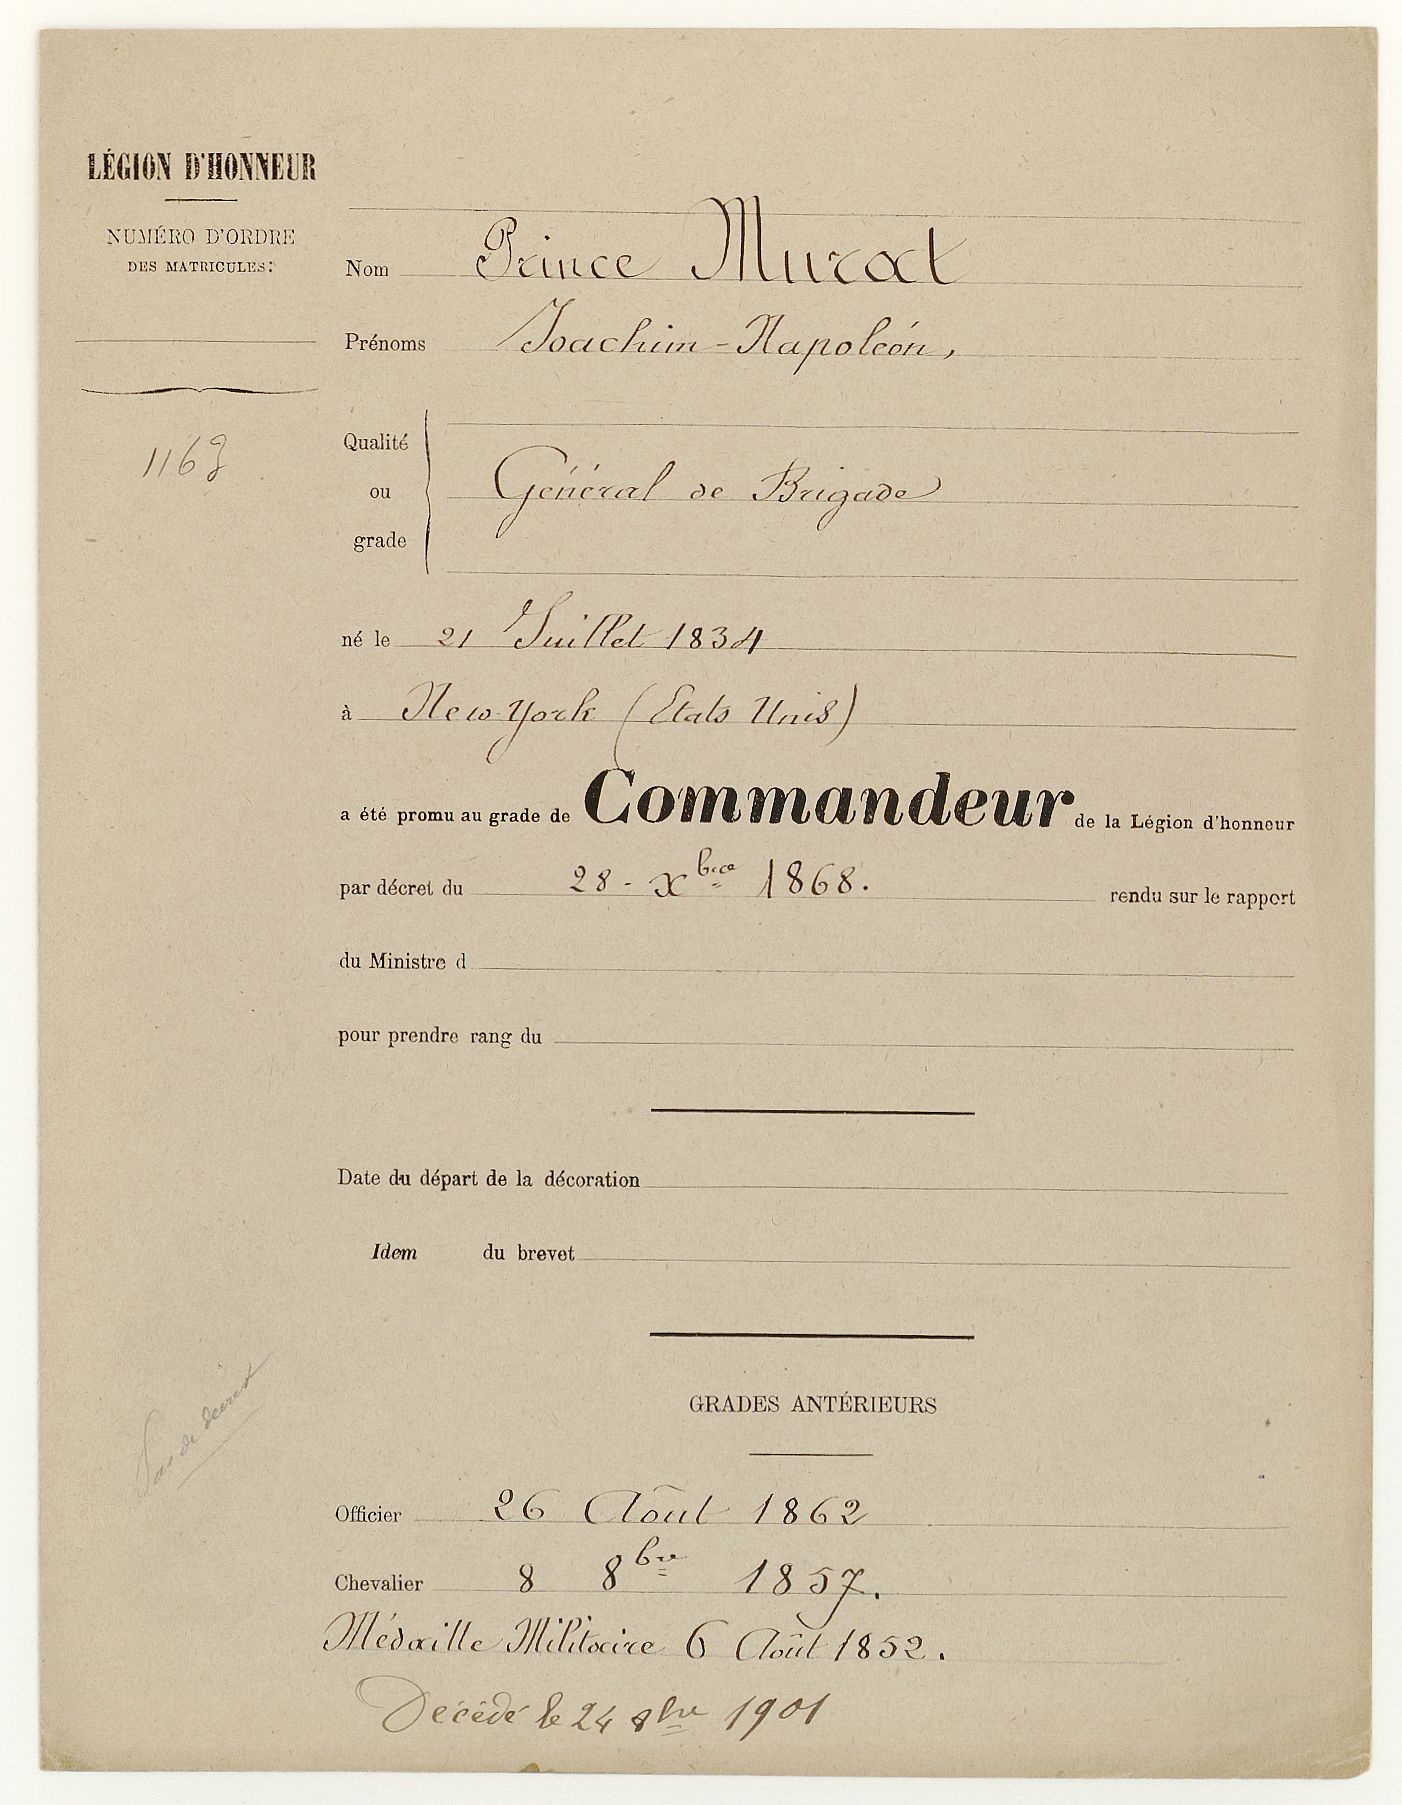 LÉGION D'HONNEUR
NUMÉRO D'ORDRE
DES MATRICULES:
1163
Nom Prince Murat
Prénoms Joachim-Napoléon,
Qualité
ou Général de Brigade
grade
né le 21 Juillet 1834
à New-York (Etats Unis)
a été promu au grade de Commandeur de la Légion d'honneur
par décret du 28 - Xbre 1868. rendu sur le rapport
du Ministre d
pour prendre rang du
Date du départ de la décoration
Idem du brevet
GRADES ANTÉRIEURS
Pas de décret
Officier 26 Août 1862
Chevalier 8 8bre 1857.
Médaille Militaire 6 Août 1852.
Décédé le 24 8bre 1901